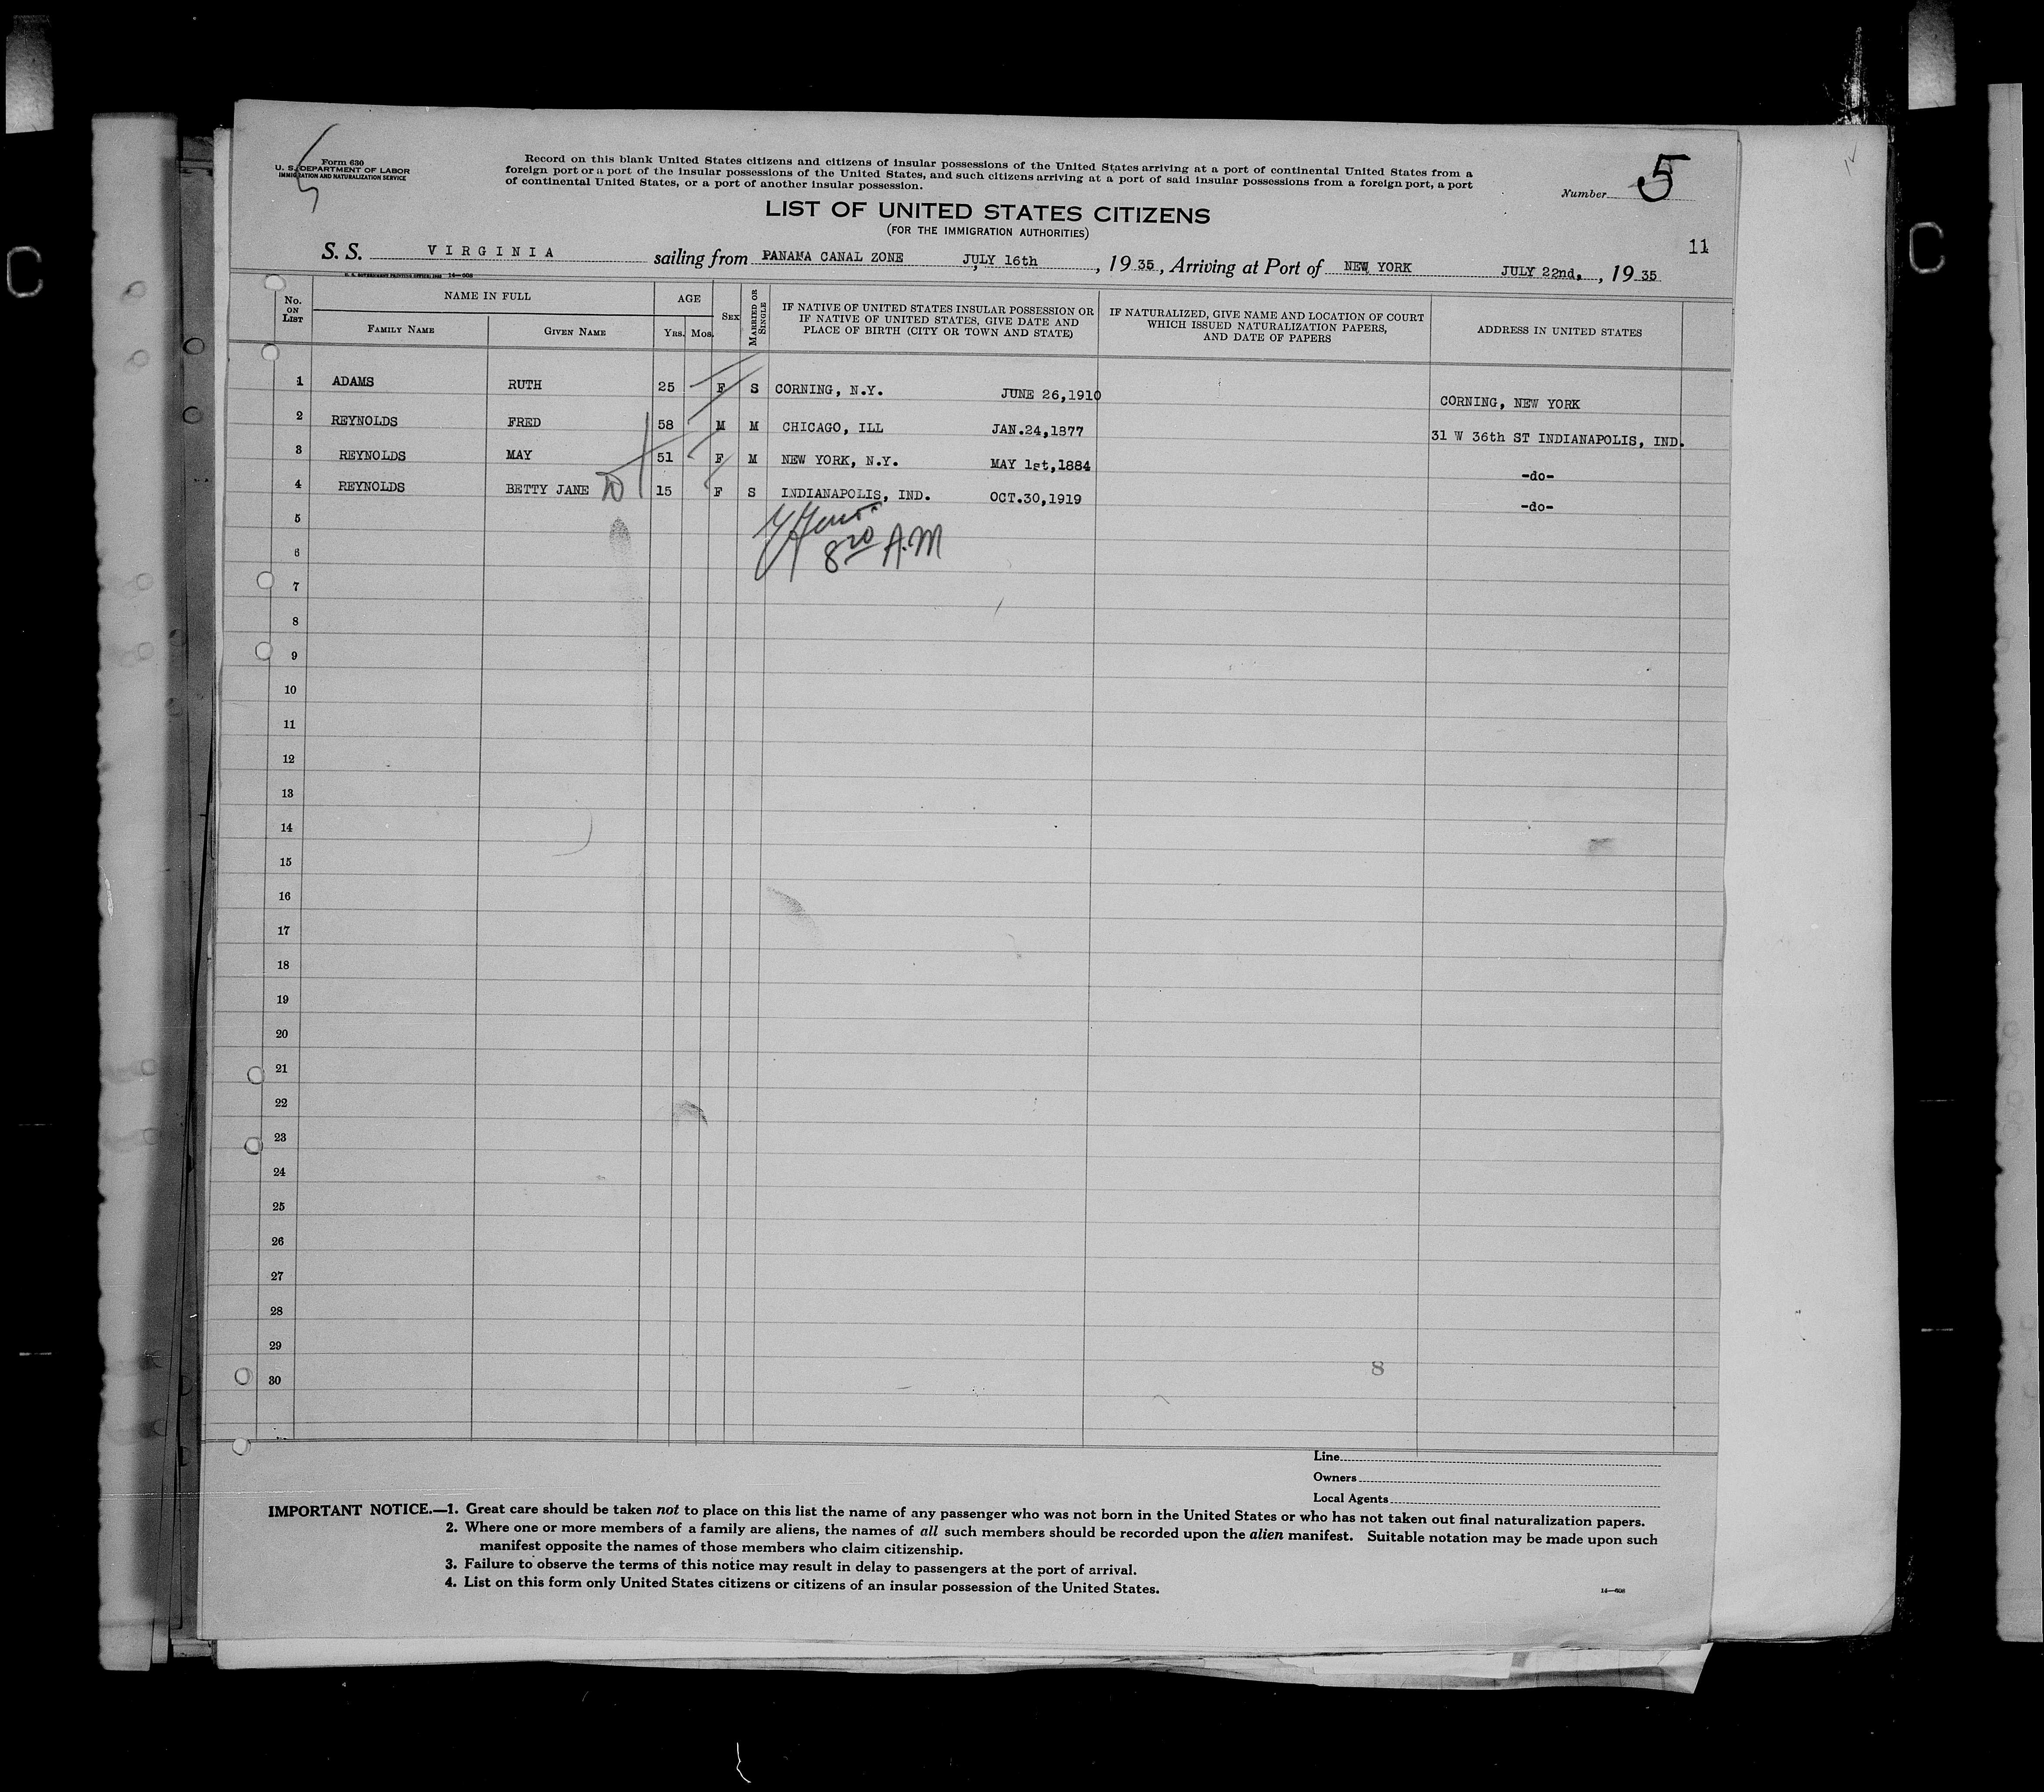 Form 630
U. S. DEPARTMENT OF LABOR
IMMIGRATION AND NATURALIZATION SERVICE
Record on this blank United States citizens and citizens of insular possessions of the United States arriving at a port of continental United States from a
foreign port or a port of the insular possessions of the United States, and such citizens arriving at a port of said insular possessions from a foreign port, a port
of continental United States, or a port of another insular possession.
Number 5
LIST OF UNITED STATES CITIZENS
(FOR THE IMMIGRATION AUTHORITIES)
11
S. S. VIRGINIA sailing from PANAMA CANAL ZONE JULY 16th, 1935, Arriving at Port of NEW YORK JULY 22nd, , 1935
U. S. GOVERNMENT PRINTING OFFICE: 14—608
No. ON LIST
NAME IN FULL
FAMILY NAME GIVEN NAME
AGE
YRS. MOS.
SEX
MARRIED OR SINGLE
IF NATIVE OF UNITED STATES INSULAR POSSESSION OR
IF NATIVE OF UNITED STATES, GIVE DATE AND
PLACE OF BIRTH (CITY OR TOWN AND STATE)
IF NATURALIZED, GIVE NAME AND LOCATION OF COURT
WHICH ISSUED NATURALIZATION PAPERS,
AND DATE OF PAPERS
ADDRESS IN UNITED STATES
1 ADAMS RUTH 25 F S CORNING, N.Y. JUNE 26,1910 CORNING, NEW YORK
2 REYNOLDS FRED 58 M M CHICAGO, ILL JAN.24,1877 31 W 36th ST INDIANAPOLIS, IND.
3 REYNOLDS MAY 51 F M NEW YORK, N.Y. MAY 1st,1884 -do-
4 REYNOLDS BETTY JANE 15 F S INDIANAPOLIS, IND. OCT.30,1919 -do-
5
8 20 A.M
6
7
8
9
10
11
12
13
14
15
16
17
18
19
20
21
22
23
24
25
26
27
28
29
8
30
Line
Owners
Local Agents
IMPORTANT NOTICE.—1. Great care should be taken not to place on this list the name of any passenger who was not born in the United States or who has not taken out final naturalization papers.
2. Where one or more members of a family are aliens, the names of all such members should be recorded upon the alien manifest. Suitable notation may be made upon such
manifest opposite the names of those members who claim citizenship.
3. Failure to observe the terms of this notice may result in delay to passengers at the port of arrival.
4. List on this form only United States citizens or citizens of an insular possession of the United States.
14—608